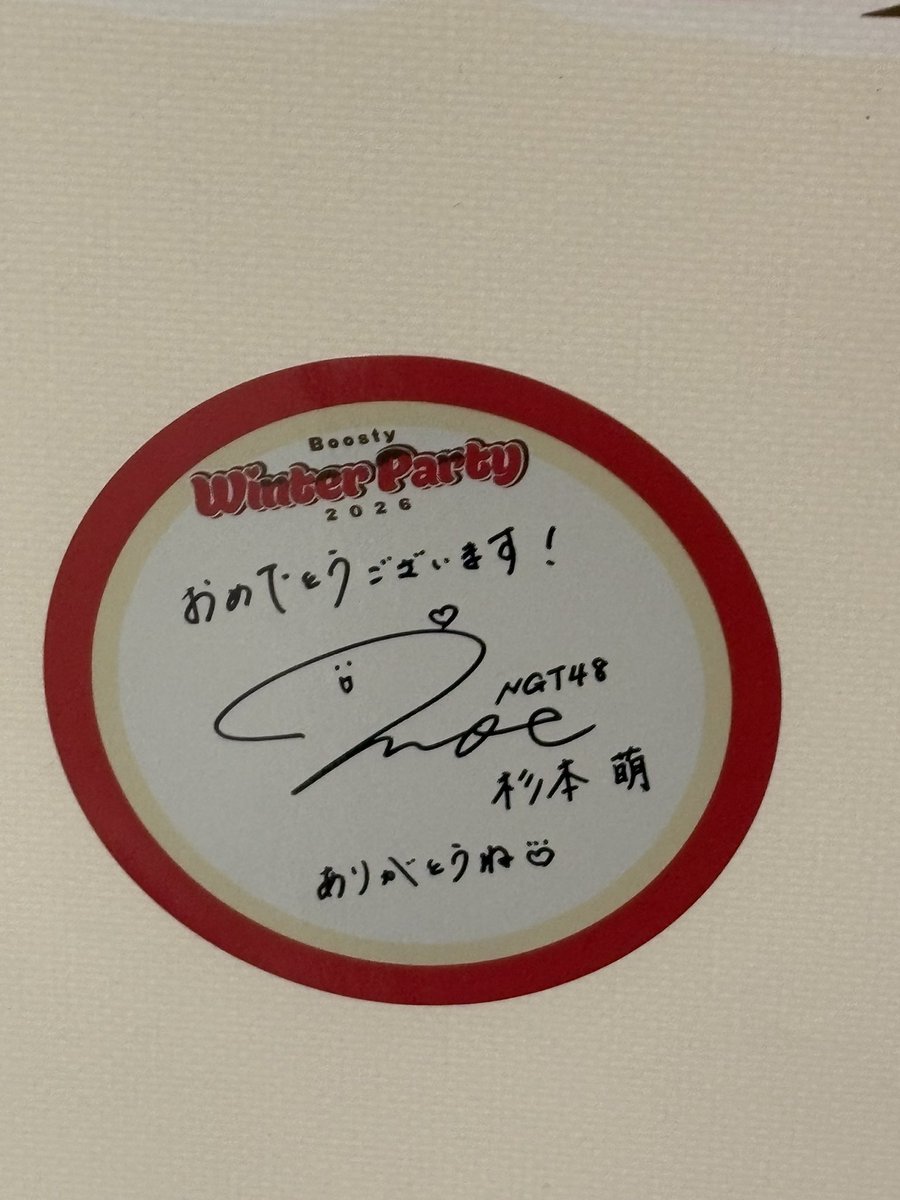 Boosty
Winter Party
2026
おめでとうございます！
NGT48
moe
杉本 萌
ありがとうね